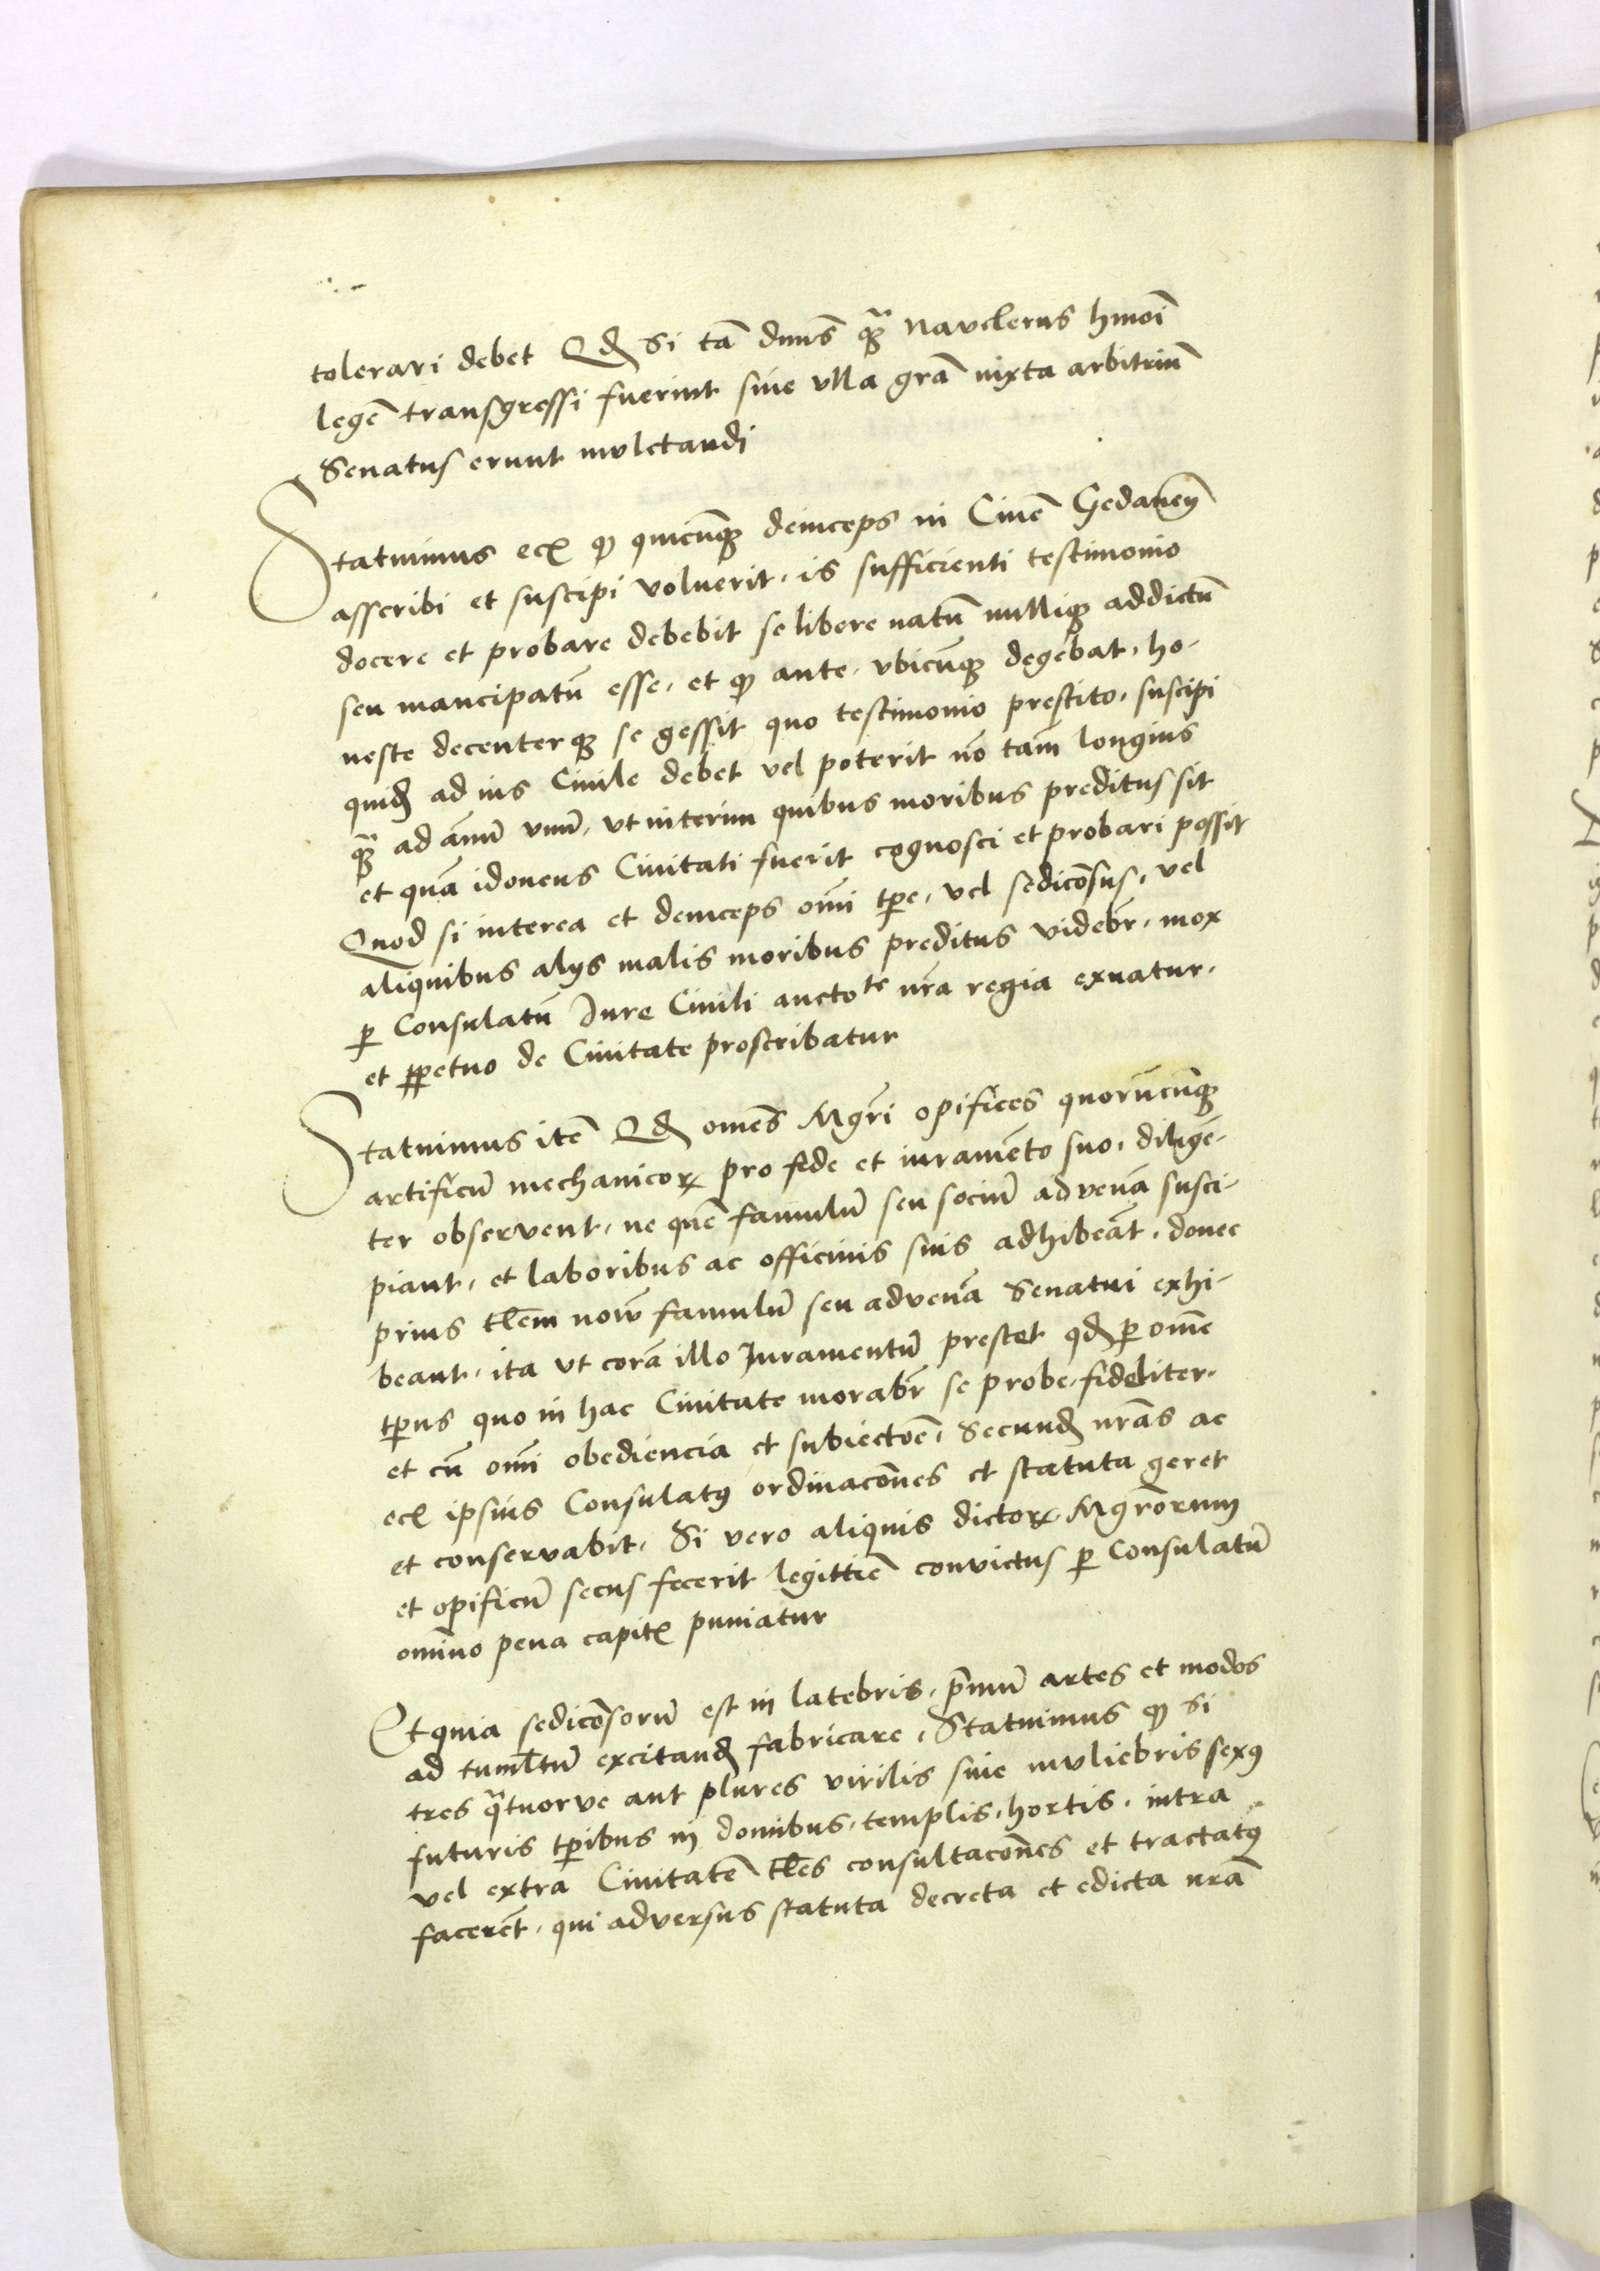 tolerari debet Qd si tā dnus̄ q̃ȝ Navclerus hmōi
legē transgressi fuerint sine vlla grā iuxta arbitriū
Senatus erunt mvlctandi
Statuimus ecꝭ ꝙ quicūqȝ deinceps in Ciuē Gedaneñ
asscribi et suscipi voluerit, is sufficienti testimonio
docere et probare debebit se libere natū nulliqȝ addictū
seu mancipatū esse, et ꝙ ante, vbicūqȝ degebat, ho-
neste decenterqȝ se gessit quo testimonio prestito, suscipi
quid̄ ad ius Ciuile debet vel poterit nō tam̄ longius
q̃ȝ ad annū vnū, vt interim quibus moribus preditus sit
et quā idoneus Ciuitati fuerit cognosci et probari possit
Quod si interea et deinceps om̄i tꝑe, vel sedicōsus, vel
aliquibus alijs malis moribus preditus videbr̄, mox
ꝑ Consulatū Iure Ciuili auctoᵗᵉ nrā regia exuatur,
et ꝑpetuo de Ciuitate proscribatur
Statuimus itē Qd om̄es Mgrī opifices quorūcūqȝ
artificū mechanicoꝝ pro fide et iuramēto suo, diligē-
ter observent, ne quē famulū seu sociū advenā susci-
piant, et laboribus ac officinis suis adhibeāt, donec
prius tlēm novū famulū seu advenā Senatui exhi-
beant, ita vt corā illo Iuramentū prestet qd ꝑ omē
tꝑus quo in hac Ciuitate morabr̄ se probe, fideliter,
et cū om̄i obediencia et subiectōe, Secund̄ nrās ac
ecꝭ ipsius Consulatꝰ ordinacōnes et statuta geret
et conservabit, Si vero aliquis dictoꝝ Mgrōrum
et opificū secus fecerit legittīe convictus ꝑ Consulatū
omīno pena capitꝭ puniatur
Et quia sedicōsorū est in latebris, p̄mū artes et modos
ad tumltū excitand̄ fabricare, Statuimus ꝙ si
tres q̃tuorve aut plures virilis siue mvliebris sexꝰ
futuris tꝑibus in domibus, templis, hortis, intra
vel extra Ciuitatē tlēs consultacōnes et tractatꝰ
facerēt, qui adversus statuta decreta et edicta nrā